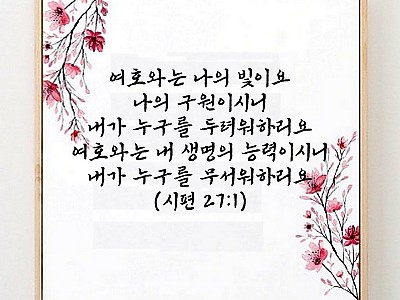 여호와는 나의 빛이요
나의 구원이시니
내가 누구를 두려워하리요
여호와는 내 생명의 능력이시니
내가 누구를 무서워하리요
(시편 27:1)